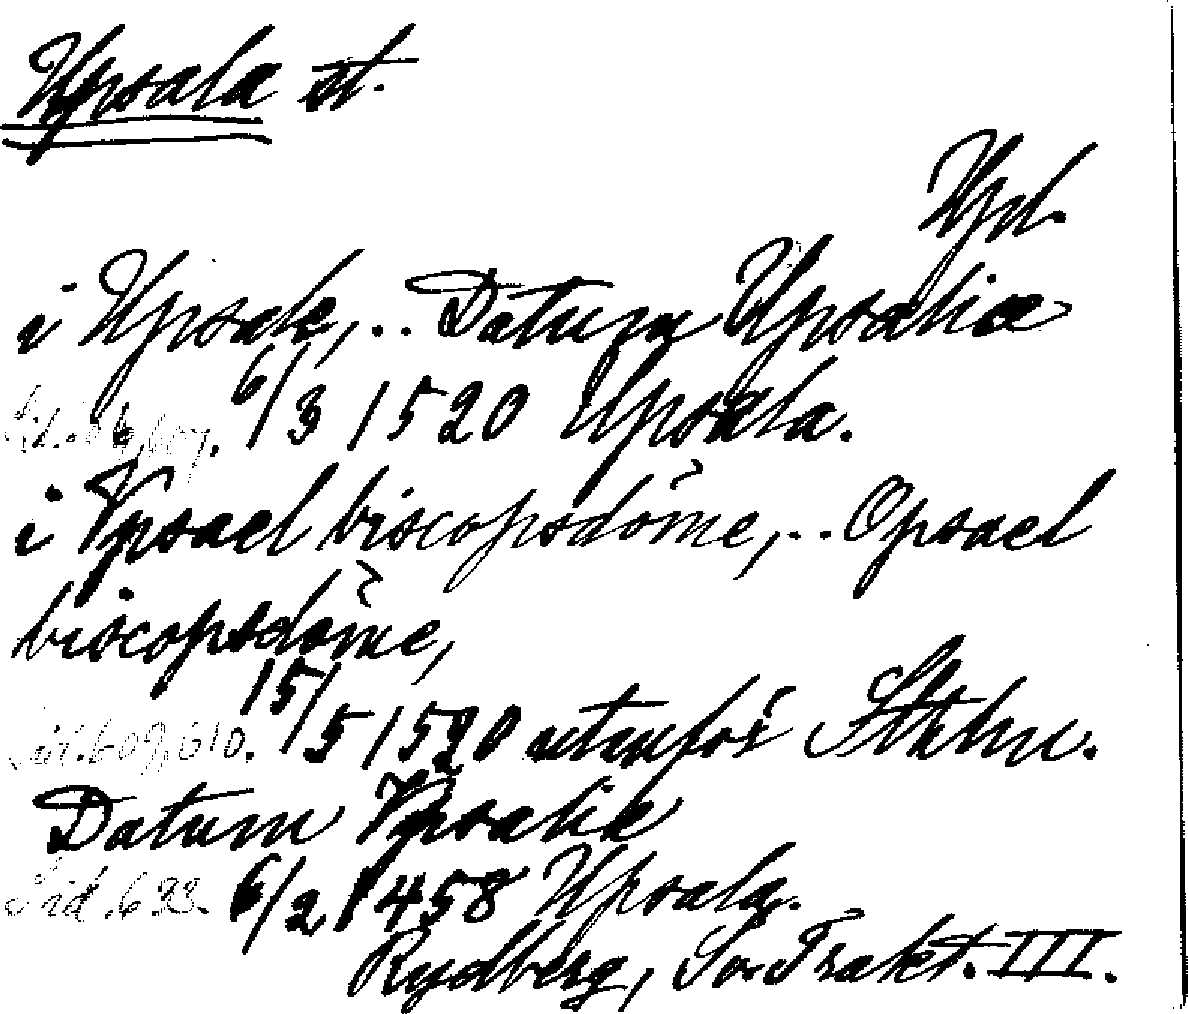 Upsala st.
Upl.
i Upsale, .. Datum Upsaliæ
Sid. 606, 607. 6/3 1520 Upsala.
i Vpsael biscopsdöme, .. Opsael
biscopsdöme,
sid. 609, 610. 15/5 1520 utanför Sthlm.
Datum Vpsalie
Sid. 633. 6/2 1458 Upsala.
Rydberg, Sv. Trakt. III.